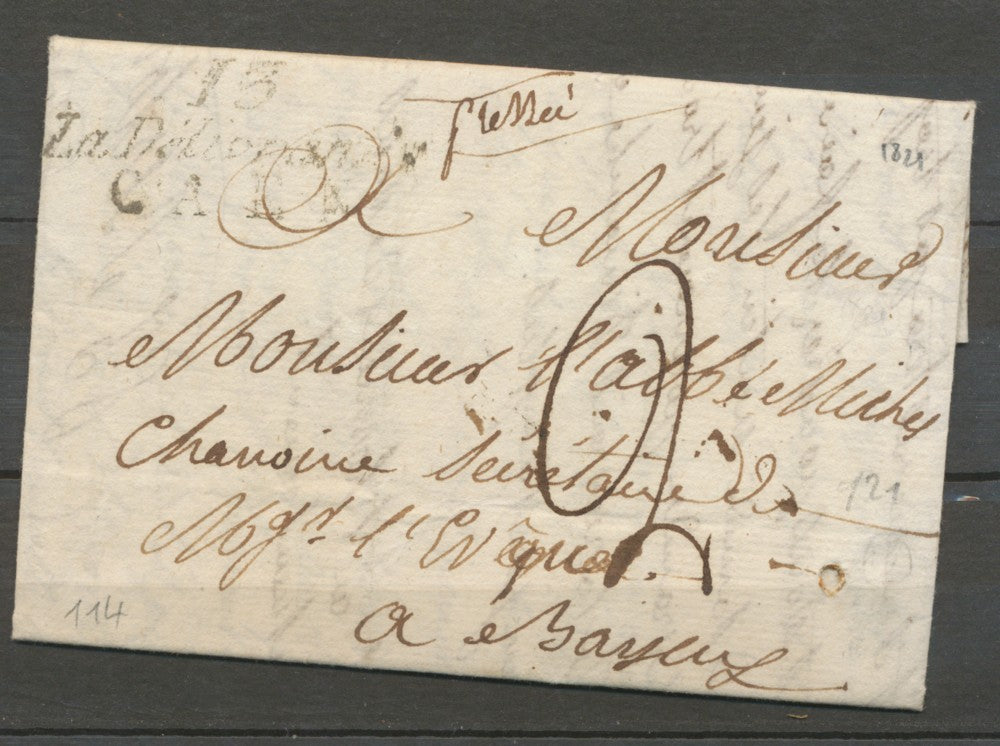 13
La Délivrande
CAEN
pressée
1821
Monsieur
Monsieur l'abbé Michel
Chanoine Secrétaire de
Mgr. l'Evêque.
2
/21
114
a Bayeux